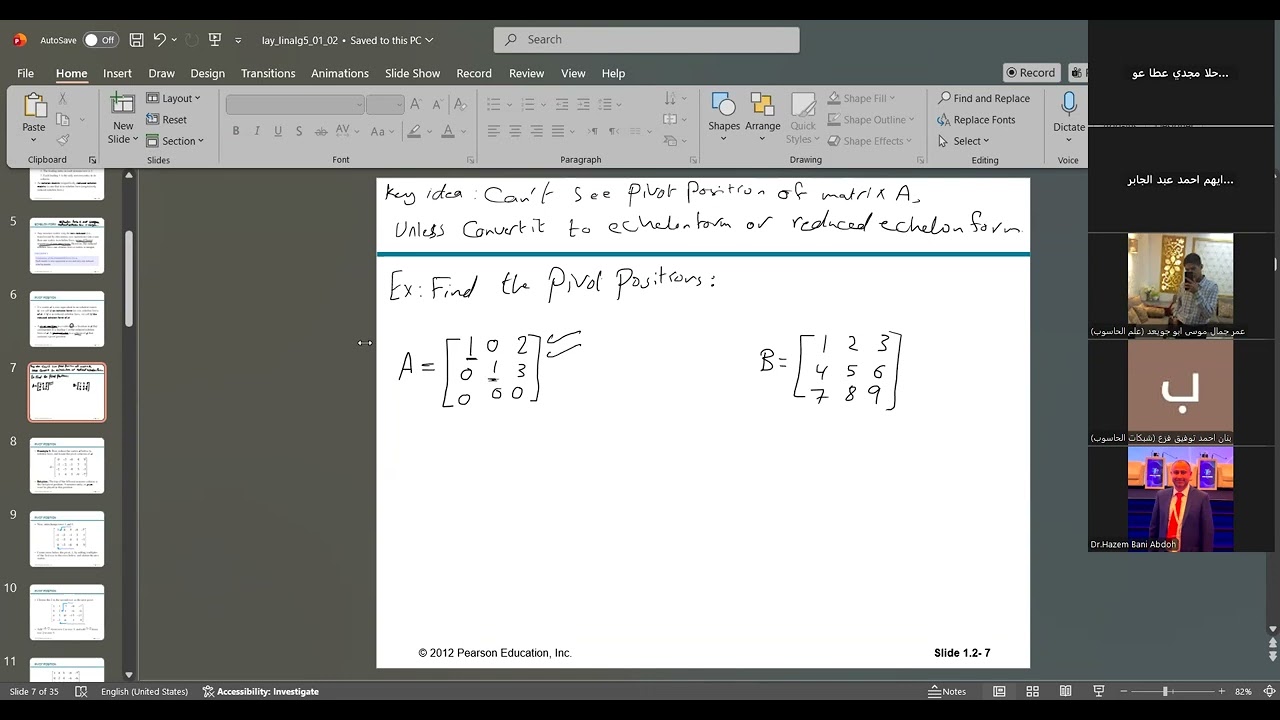 AutoSave Off lay_linalg5_01_02 • Saved to this PC Search
File Home Insert Draw Design Transitions Animations Slide Show Record Review View Help Record
Paste New Slide Layout Reset Section
Shapes Arrange Quick Styles Shape Fill Shape Outline Shape Effects
Find and Replace Replace Fonts Select Dictate
B I U S ab AV Aa A
Clipboard Slides Font Paragraph Drawing Editing Voice
حلا مجدي عطا عو...
ايهم احمد عبد الجابر...
عمر جمال موسى ابو جويعد (علم الحاسوب)
ب
بنان احمد توفيق قزع (شبكات الحاسوب)
Dr.Hazem Bani Abdoh
5
6
7
8
9
10
11
Key idea Can't see pivot position of matrix A,
Unless convert it to echelon form reduced echelon form
Ex: Find the Pivot Positions:
A = [1 0 2
0 1 3
0 0 0]
B = [1 2 3
4 5 6
7 8 9]
© 2012 Pearson Education, Inc. Slide 1.2- 7
Slide 7 of 35 English (United States) Accessibility: Investigate Notes 82%